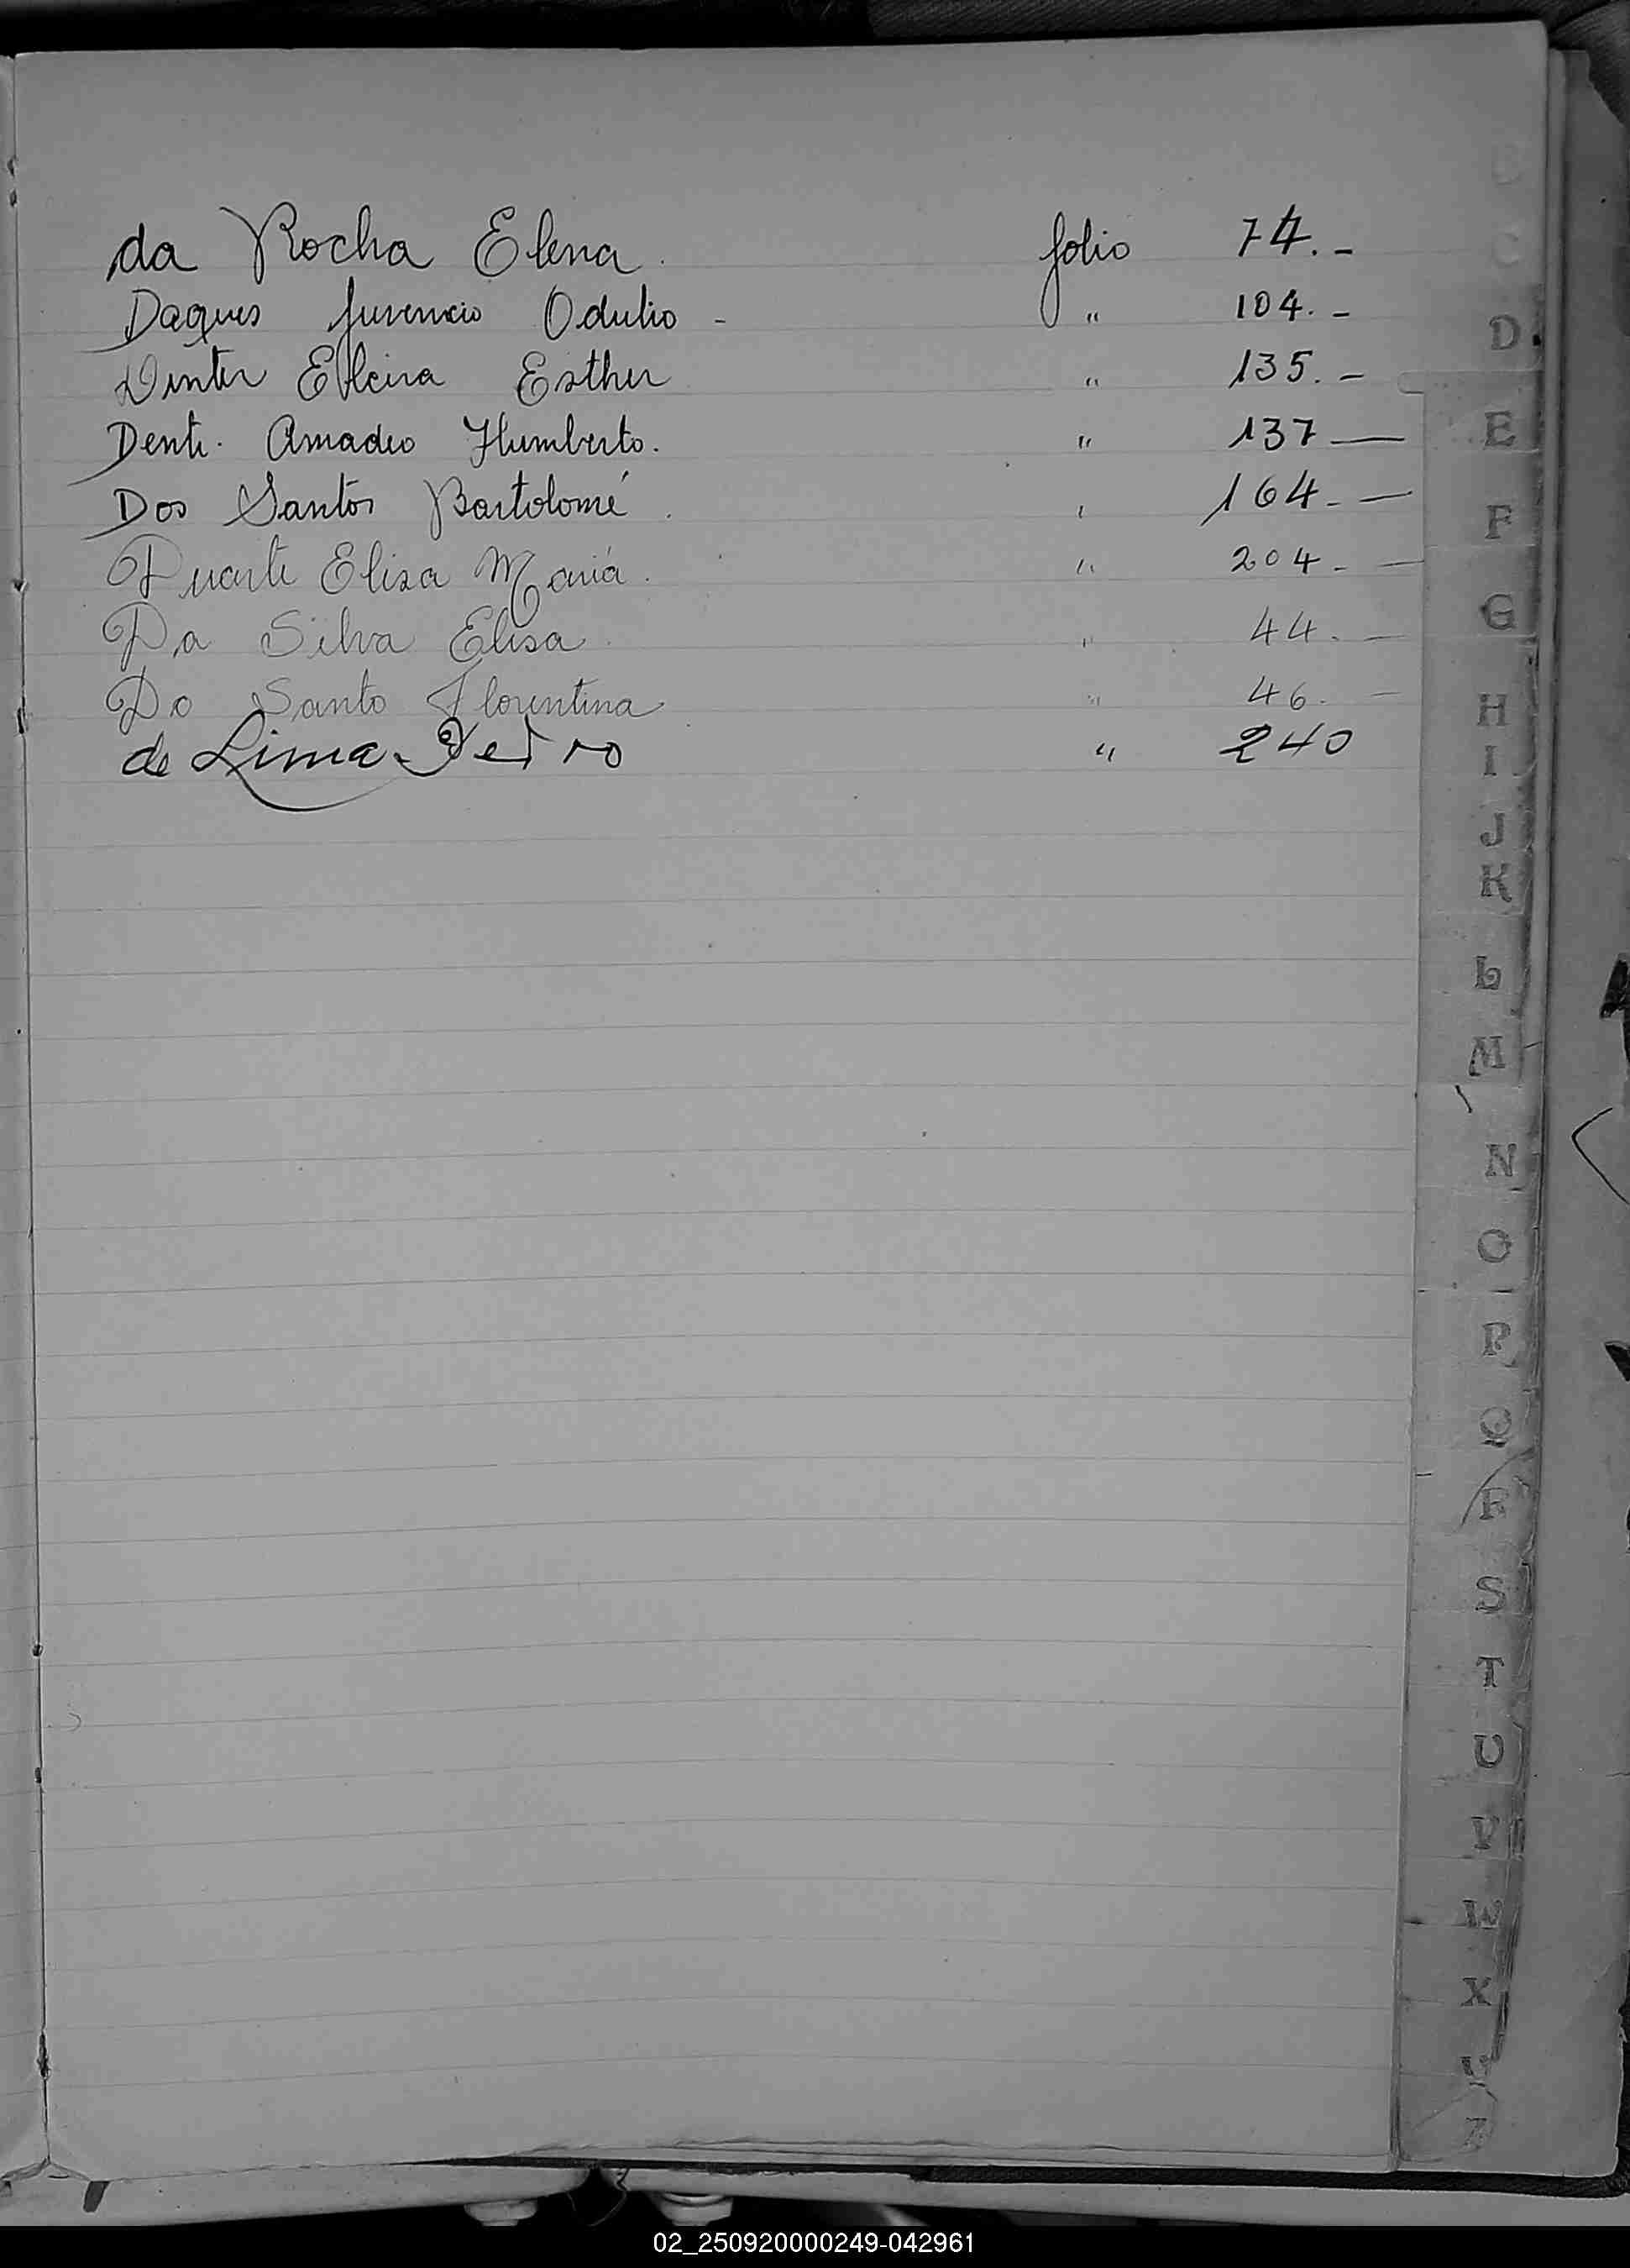 da Rocha Elena. folio 74.-
Daques Juvencio Odulio - " 104.-
Dinter Elcira Esther " 135.-
Denti. Amadeo Humberto. " 137 —
Dos Santos Bartolomé. " 164.- —
Duarte Elisa María. " 204.- —
Da Silva Elisa. " 44.- —
Do Santo Florentina " 46.- —
de Lima Pedro " 240
C
D
E
F
G
H
I
J
K
L
M
N
O
P
Q
R
S
T
U
V
W
X
Y
Z
02_250920000249-042961